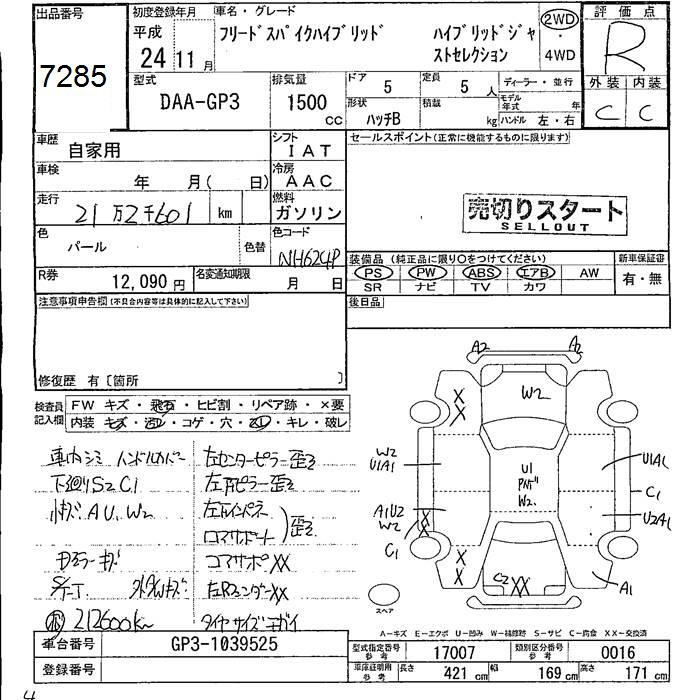 出品番号
7285
初度登録年月
平成
24 11月
車名・グレード
フリードスパイクハイブリッド
ハイブリッドジャ
ストセレクション
2WD
・
4WD
評価点
R
外装 内装
C C
型式
DAA-GP3
排気量
1500
cc
ドア
5
定員
5 人
形状
ハッチB
積載
kg
ディーラー・並行
モデル年式 年
ハンドル 左・右
車歴
自家用
シフト
IAT
車検
年 月( 日)
冷房
AAC
走行
21万2千601 km
燃料
ガソリン
色
パール
色替
色コード
NH624P
R券
12,090 円
名変通知期限
月 日
セールスポイント(正常に機能するものに限ります)
売切りスタート
SELLOUT
装備品 (純正品に限り○をつけてください)
新車保証書
PS PW ABS エアB AW
SR ナビ TV カワ
有・無
後日品
注意事項申告欄(不具合内容等は具体的に記入して下さい)
修復歴 有〔箇所 〕
検査員
記入欄
FW キズ・飛石・ヒビ割・リペア跡・×要
内装 キズ・汚レ・コゲ・穴・スレ・キレ・破レ
車内シミ ハンドルカバー
下廻りS2C1
小キズAU、W2
212600km
左センターピラー歪ミ
左Fピラー歪ミ
左Fインパネ
コアサポート
歪ミ
コアサポXX
左RフェンダーXX
タイヤサイズチガイ
A2
A2
W2
XX
W2
U1A1
U1
W2
U1A1
C1
U2A1
A1U2
W2
XX
C1
XX
C2
XX
A1
スペア
A-キズ E-エクボ U-凹み W-補修跡 S-サビ C-腐食 XX-交換済
車台番号
GP3-1039525
登録番号
型式指定番号
参考
17007
類別区分番号
参考
0016
車庫証明用
参考
長さ
421 cm
幅
169 cm
高さ
171 cm